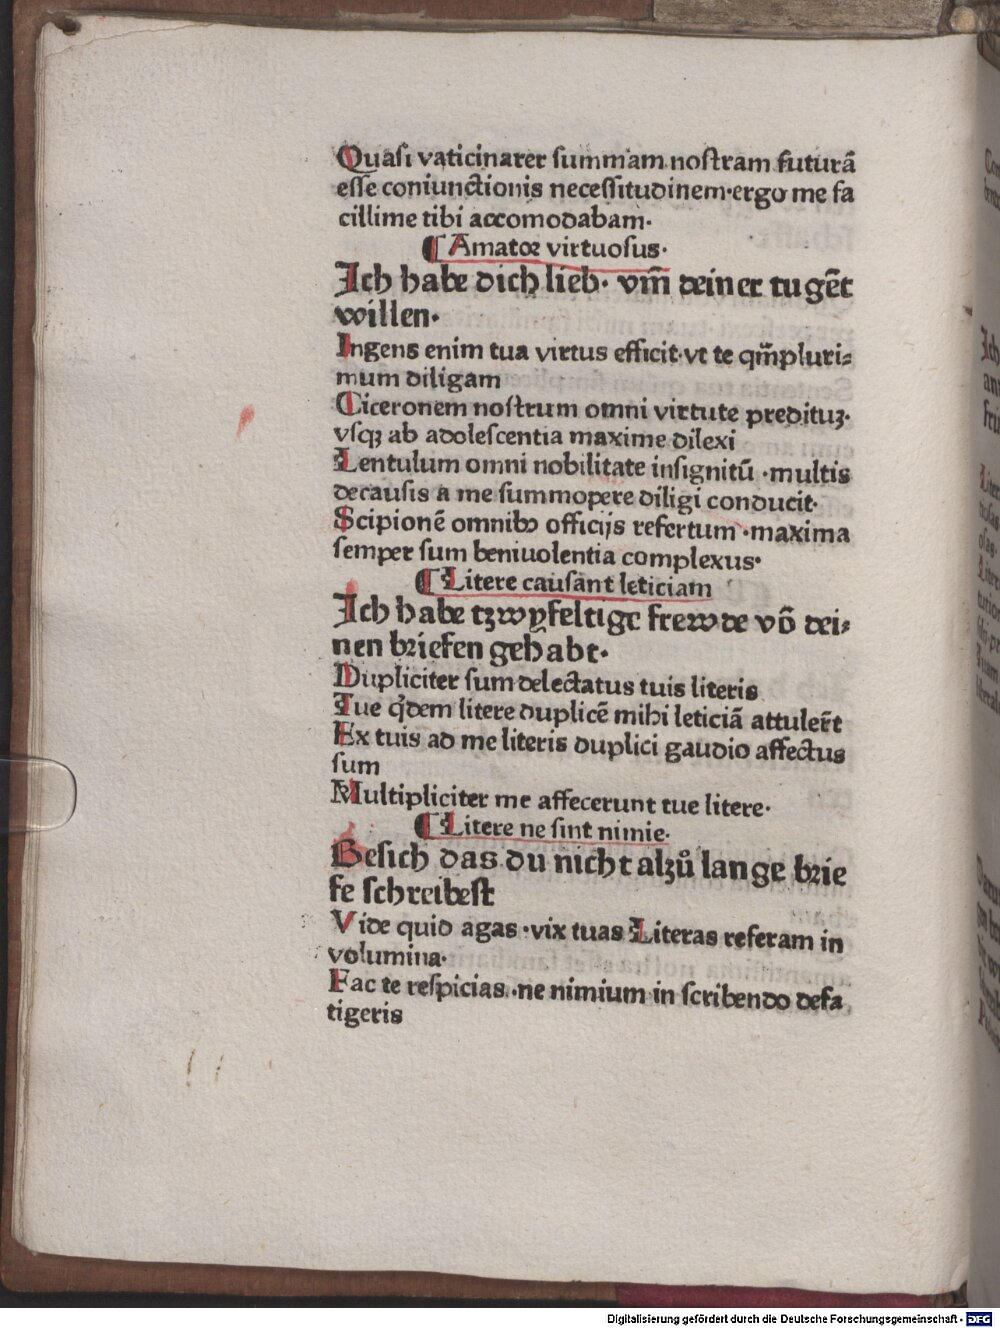 Quasi vaticinarer summam nostram futurā
esse coniunctionis necessitudinem·ergo me fa
cillime tibi accomodabam·
¶ Amator virtuosus·
Ich habe dich lieb· vm̄ deiner tugēt
willen·
Ingens enim tua virtus efficit·vt te qm̄pluri-
mum diligam
Ciceronem nostrum omni virtute predituꝫ·
vsqꝫ ab adolescentia maxime dilexi
Lentulum omni nobilitate insignitū ·multis
decausis a me summopere diligi conducit·
Scipionē omnibꝰ officijs refertum ·maxima
semper sum beniuolentia complexus·
¶ Litere causant leticiam
Ich habe tzwyfeltige frewde vō dei-
nen briefen gehabt·
Dupliciter sum delectatus tuis literis
Tue q̇dem litere duplicē mihi leticiā attuler̄t
Ex tuis ad me literis duplici gaudio affectus
sum
Multipliciter me affecerunt tue litere·
¶ Litere ne sint nimie·
Besich das du nicht alzů lange brie
fe schreibest
Vide quid agas ·vix tuas Literas referam in
volumina·
Fac te respicias ·ne nimium in scribendo defa
tigeris
Digitalisierung gefördert durch die Deutsche Forschungsgemeinschaft - DFG